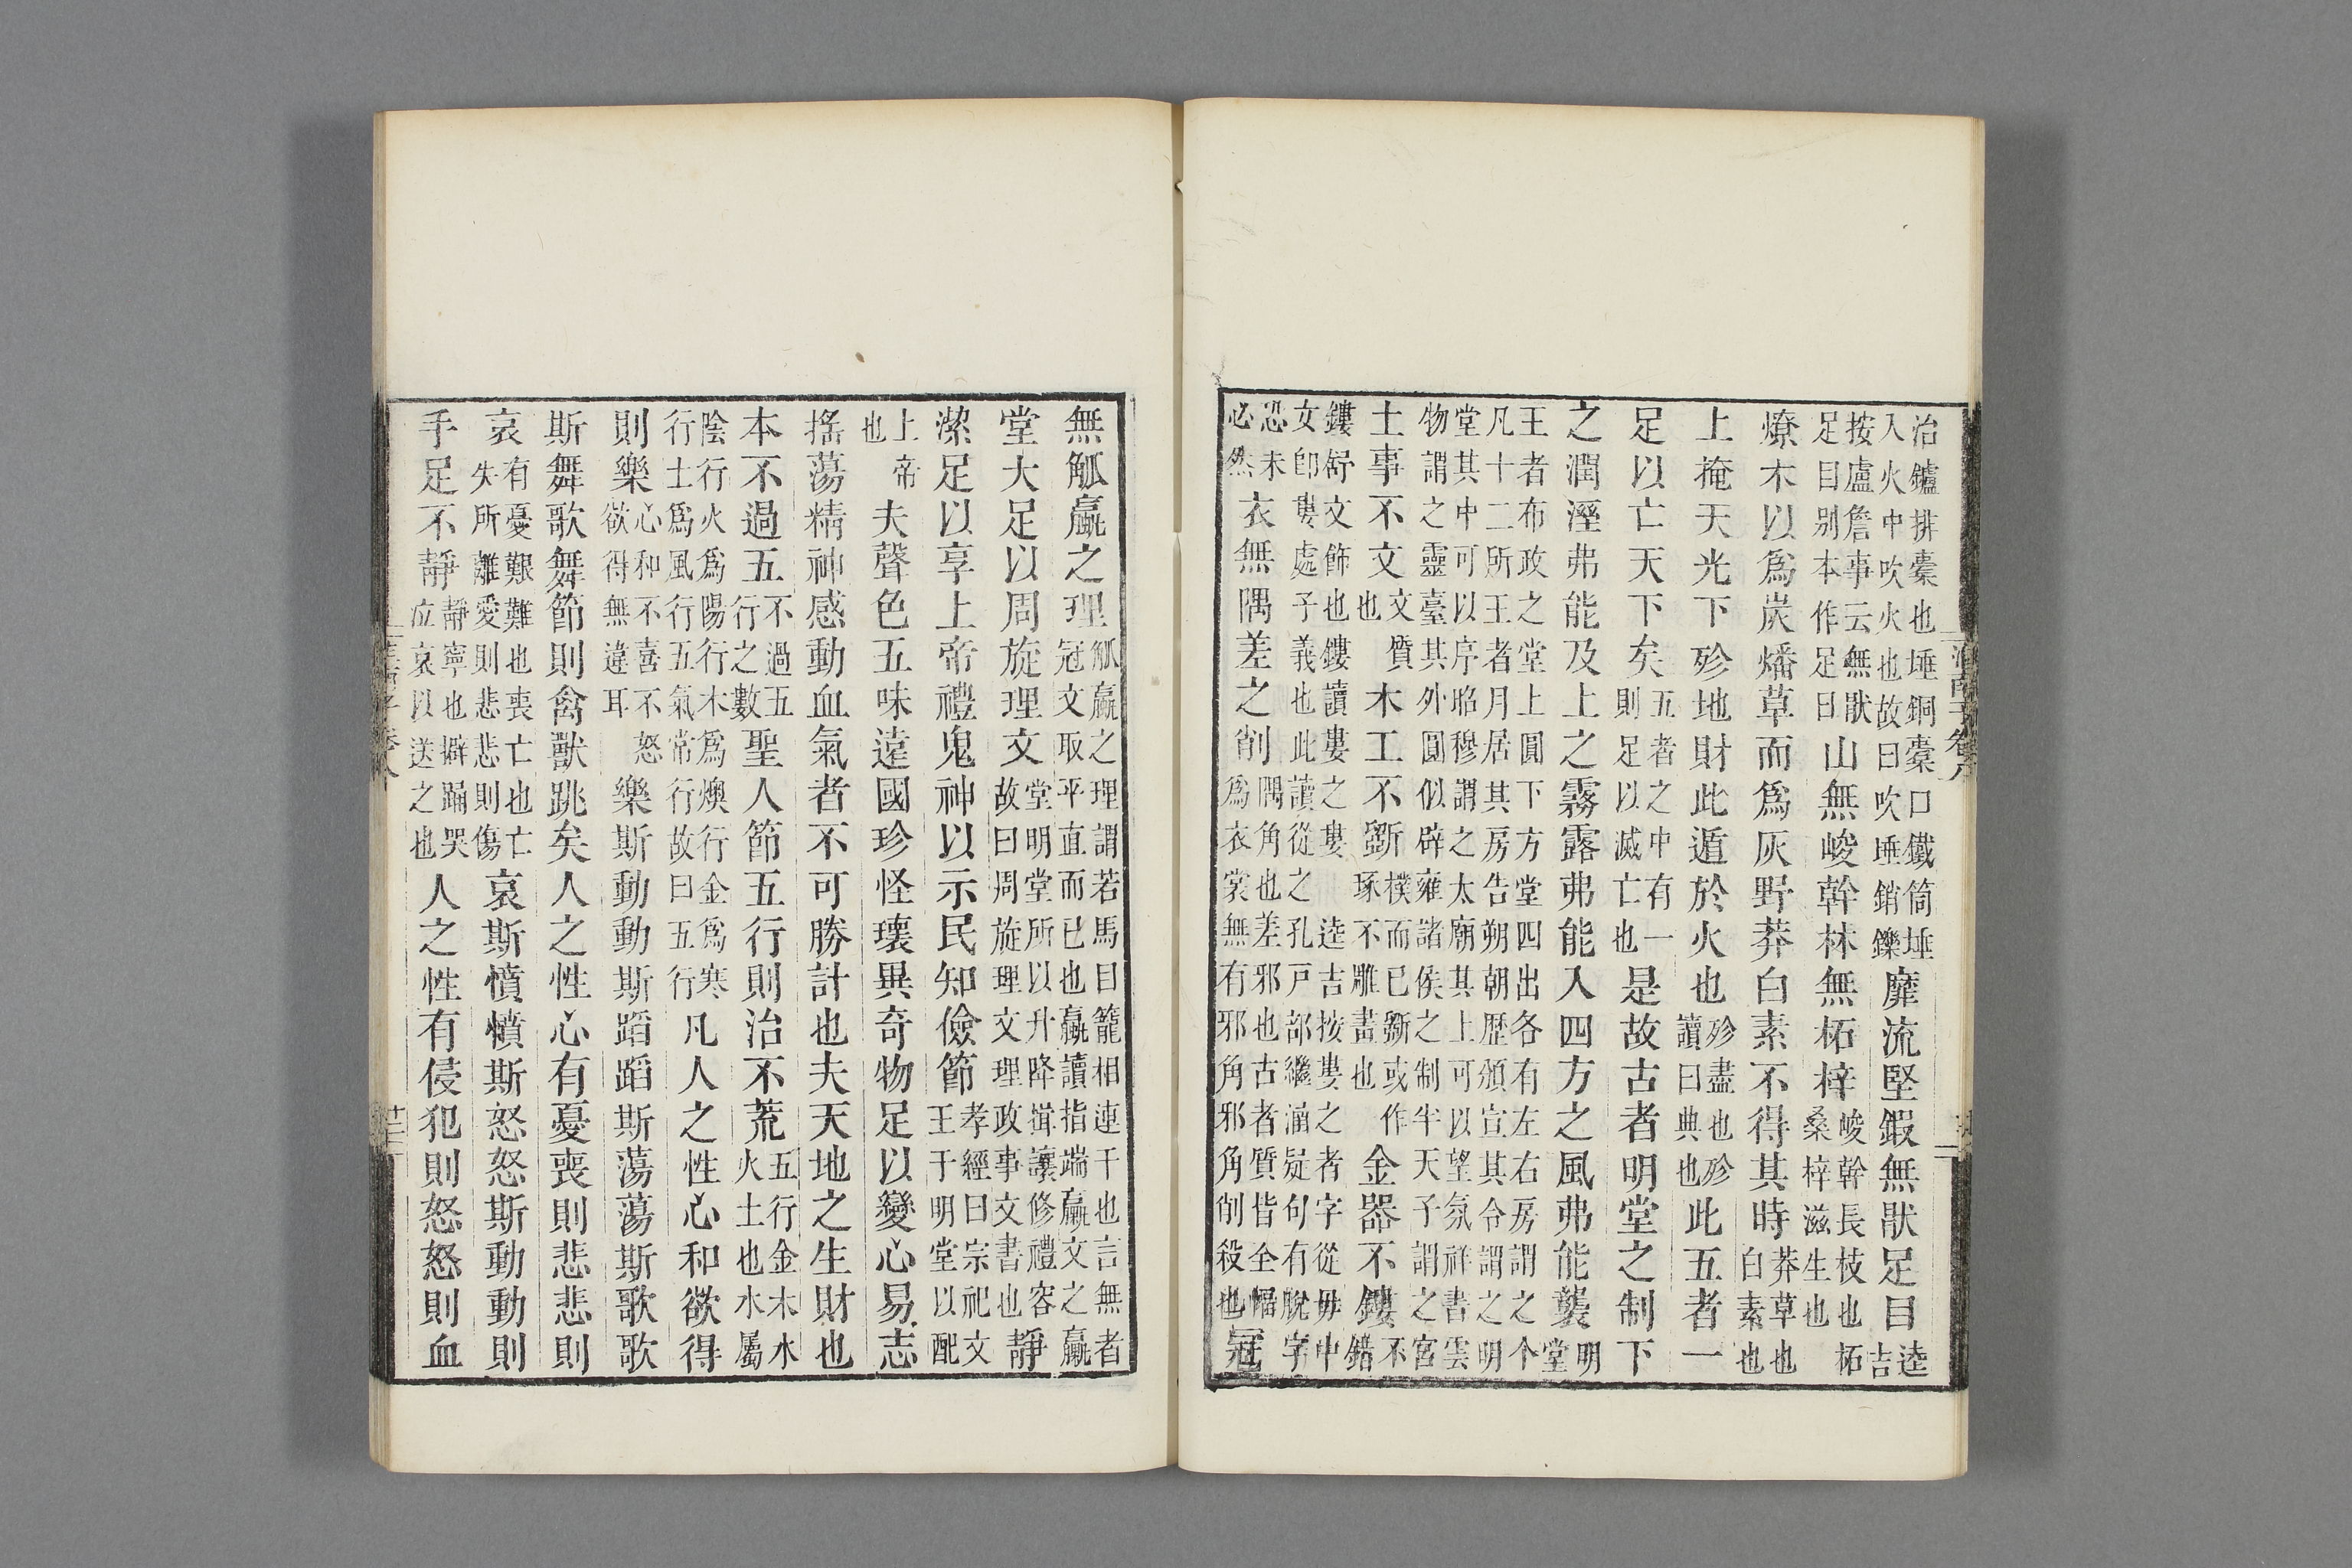 治鑪排橐也埵銅橐口鐵筒埵入火中吹火也故曰吹埵銷鑠靡流堅鍜無猒足目逵吉
按盧詹事云無猒足目别本作足日山無峻幹林無柘梓峻幹長枝也柘桑梓滋生也
燎木以爲炭燔草而爲灰野莽白素不得其時莽草也白素也
上掩天光下殄地財此遁於火也殄盡也殄讀曰典也此五者一
足以亡天下矣五者之中有一則足以滅亡也是故古者明堂之制下
之潤溼弗能及上之霧露弗能入四方之風弗能襲明堂
王者布政之堂上圓下方堂四出各有左右房謂之个凡十二所王者月居其房告朔朝歷頒宣其令謂之明
堂其中可以序昭穆謂之太廟其上可以望氛祥書雲物謂之靈臺其外圓似辟雍諸侯之制半天子謂之宮
土事不文文質也木工不斲樸而已斲或作琢不雕畫也金器不鏤不錯
鏤舒文飾也鏤讀婁之婁逵吉按婁之者字從毋中女卽婁處子義也此讀從之孔戸部繼涵疑句有脫字
恐未必然衣無隅差之削隅角也差邪也古者質皆全幅爲衣裳無有邪角邪角削殺也冠
無觚蠃之理觚蠃之理謂若馬目籠相連干也言無者冠文取平直而已也蠃讀指端蠃文之蠃
堂大足以周旋理文堂明堂所以升降揖讓修禮容故曰周旋理文理政事文書也靜
潔足以享上帝禮鬼神以示民知儉節孝經曰宗祀文王于明堂以配
上帝也夫聲色五味遠國珍怪瓌異奇物足以變心易志
搖蕩精神感動血氣者不可勝計也夫天地之生財也
本不過五不過五行之數五聖人節五行則治不荒五行金木水火土也水屬
陰行火爲陽行木爲燠行金爲寒行土爲風行五氣常行故曰五行凡人之性心和欲得
則樂心和不喜不怒欲得無違耳樂斯動動斯蹈蹈斯蕩蕩斯歌歌
斯舞歌舞節則禽獸跳矣人之性心有憂喪則悲悲則
哀有憂艱難也喪亡也亡失所離愛則悲悲則傷哀斯憤憤斯怒怒斯動動則
手足不靜靜寧也擗踊哭泣哀以送之也人之性有侵犯則怒怒則血